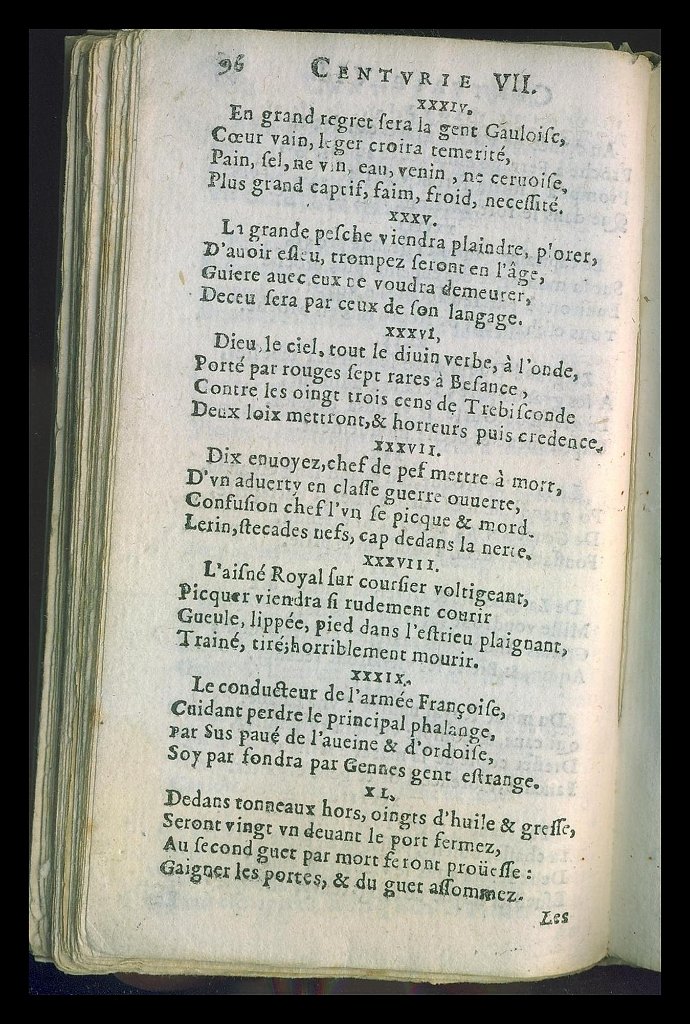 96 CENTVRIE VII.
XXXIV.
En grand regret ſera la gent Gauloiſe,
Cœur vain, leger croira temerité,
Pain, ſel, ne vin, eau, venin, ne ceruoiſe,
Plus grand captif, faim, froid, neceſſité.
XXXV.
La grande peſche viendra plaindre, plorer,
D'auoir eſleu, trompez ſeront en l'âge,
Guiere auec eux ne voudra demeurer,
Deceu ſera par ceux de ſon langage.
XXXVI,
Dieu, le ciel, tout le diuin verbe, à l'onde,
Porté par rouges ſept rares à Beſance,
Contre les oingt trois cens de Trebiſconde
Deux loix mettront, & horreurs puis credence.
XXXVII.
Dix enuoyez, chef de pef mettre à mort,
D'vn aduertv en claſſe guerre ouuerte,
Confuſion chef l'vn ſe picque & mord.
Lerin, ſtecades nefs, cap dedans la nerte.
XXXVIII.
L'aiſné Royal ſur courſier voltigeant,
Picquer viendra ſi rudement courir
Gueule, lippée, pied dans l'eſtrieu plaignant,
Trainé, tiré; horriblement mourir.
XXXIX.
Le conducteur de l'armée Françoiſe,
Cuidant perdre le principal phalange,
Par Sus paué de l'aueine & d'ordoiſe,
Soy par fondra par Gennes gent eſtrange.
XL.
Dedans tonneaux hors, oingts d'huile & greſſe,
Seront vingt vn deuant le port fermez,
Au ſecond guet par mort feront proüeſſe :
Gaigner les portes, & du guet aſſommez.
Les